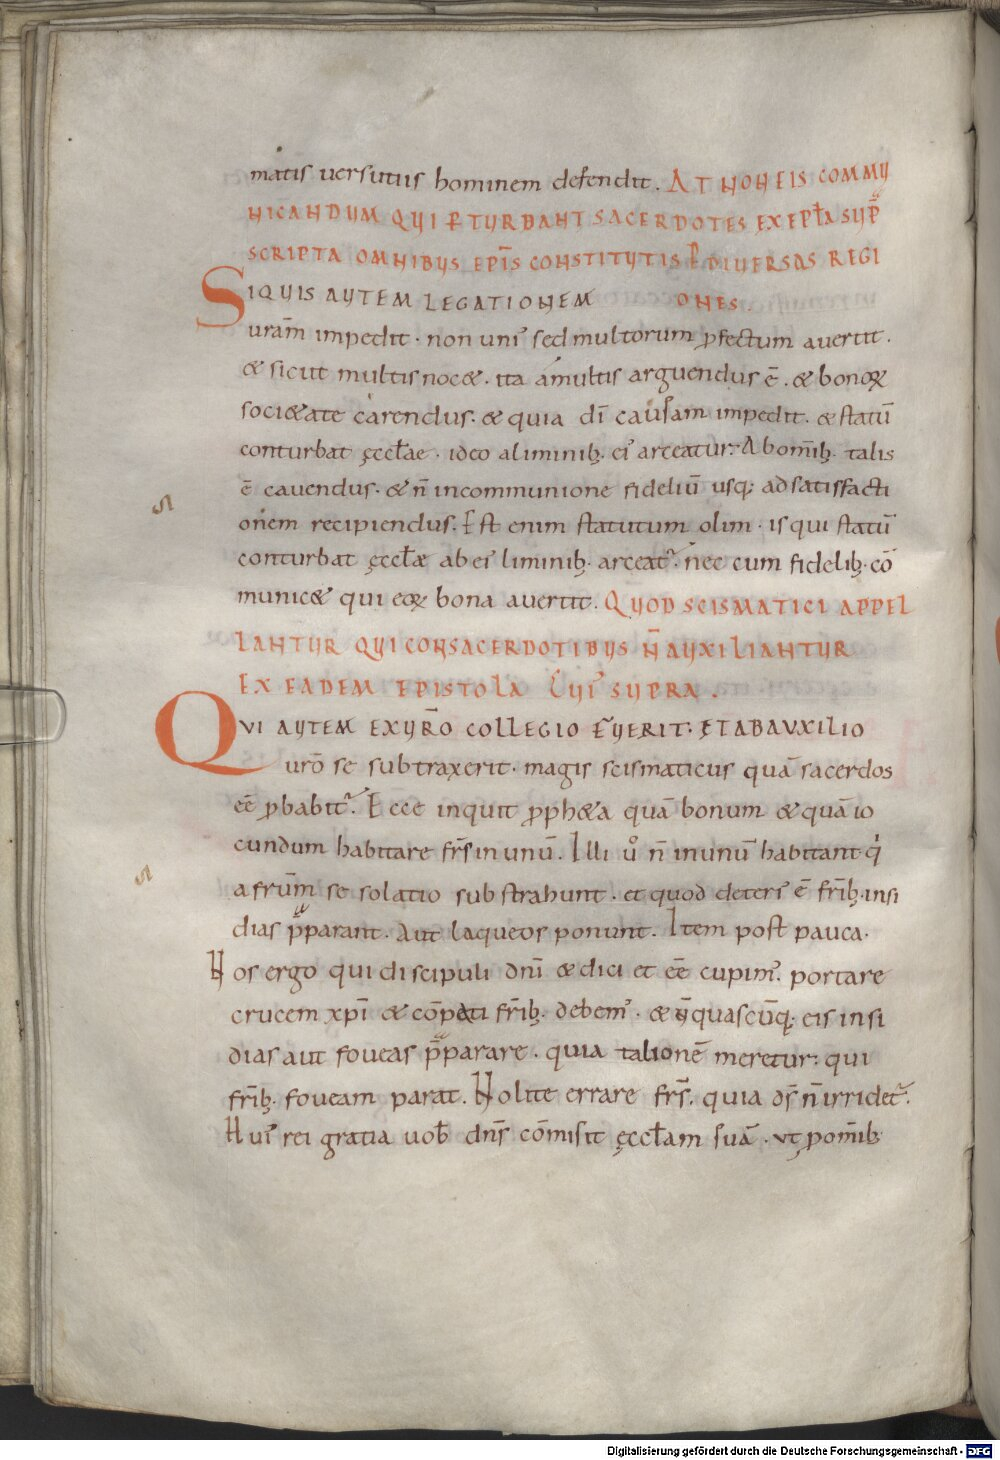 matis versutiis hominem defendit. AT NON EIS COMMU
NICANDUM QUI PTURBANT SACERDOTES EX EPLA SUP
SCRIPTA OMNIBUS EPIS CONSTITUTIS P DIUERSAS REGI
SIQUIS AUTEM LEGATIONEM ONES.
uram impedit. non uni' sed multorum pfectum avertit.
& sicut multis noc&. ita amultis arguendus ē. & bonoꝝ
soci&ate carendus. & quia dī causam impedit. & statū
conturbat ęccłae. ideo aliminibꝫ. ei' arceatur. Ab omībꝫ. talis
ē cavendus. & n̄ incommunione fideliū usqꝫ adsatisfacti
onem recipiendus. Est enim statutum olim. is qui statū
conturbat ęccłæ ab ei' liminibꝫ. arceat'. nec cum fidelibꝫ. cō
munic& qui eoꝝ bona avertit. QUOD SCISMATICI APPEL
LANTUR QUI CONSACERDOTIBUS N̄ AUXILIANTUR
EX EADEM EPISTOLA CUI' SUPRA.
QVI AUTEM EXURO COLLEGIO FUERIT. ET AB AVXILIO
urō se subtraxerit. magis scismaticus quā sacerdos
ēē pbabit'. Ecce inquit pph&a quā bonum & quā io
cundum habitare frs in unū. Illi u° n̄ inunū habitant q
a frūm se solatio substrahunt. et quod deteri' ē frībꝫ. insi
dias p̄parant. Aut laqueos ponunt. Item post pauca.
Nos ergo qui discipuli dnī & dici et ēē cupim'. portare
crucem xpī & cōpati frībꝫ. debem'. & n̄quascūqꝫ. eis insi
dias aut foveas p̄parare. quia talionē meretur. qui
frībꝫ. foveam parat. Nolite errare frs. quia ds n̄ irridet'.
Hui' rei gratia uob dns cōmisit ęccłam suā. ut p omībꝫ